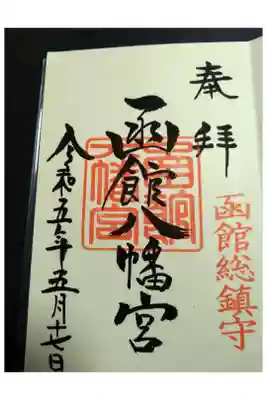 奉拝
函館総鎮守
函館八幡宮
令和五年五月十七日